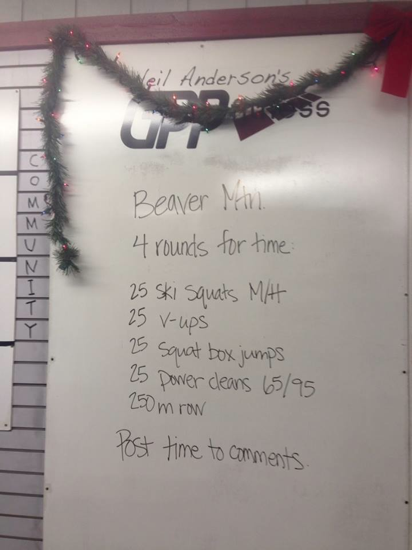 Neil Anderson's
GPP
Beaver Mtn.
4 rounds for time:
25 Ski Squats M/H
25 V-ups
25 Squat box jumps
25 power cleans 65/95
250m row
Post time to comments.
COMMUNITY